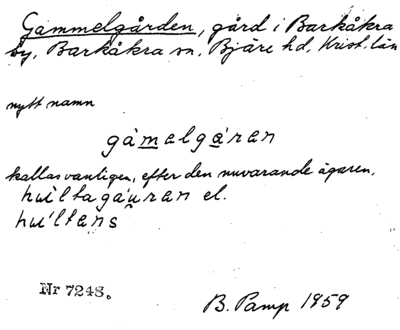 Gammelgården, gård i Barkåkra
by, Barkåkra sn, Bjäre hd, Krist. län
nytt namn
gámelgáran
kallas vanligen, efter den nuvarande ägaren,
hultagáuran el.
hultens
Nr 7248.
B. Pamp 1959